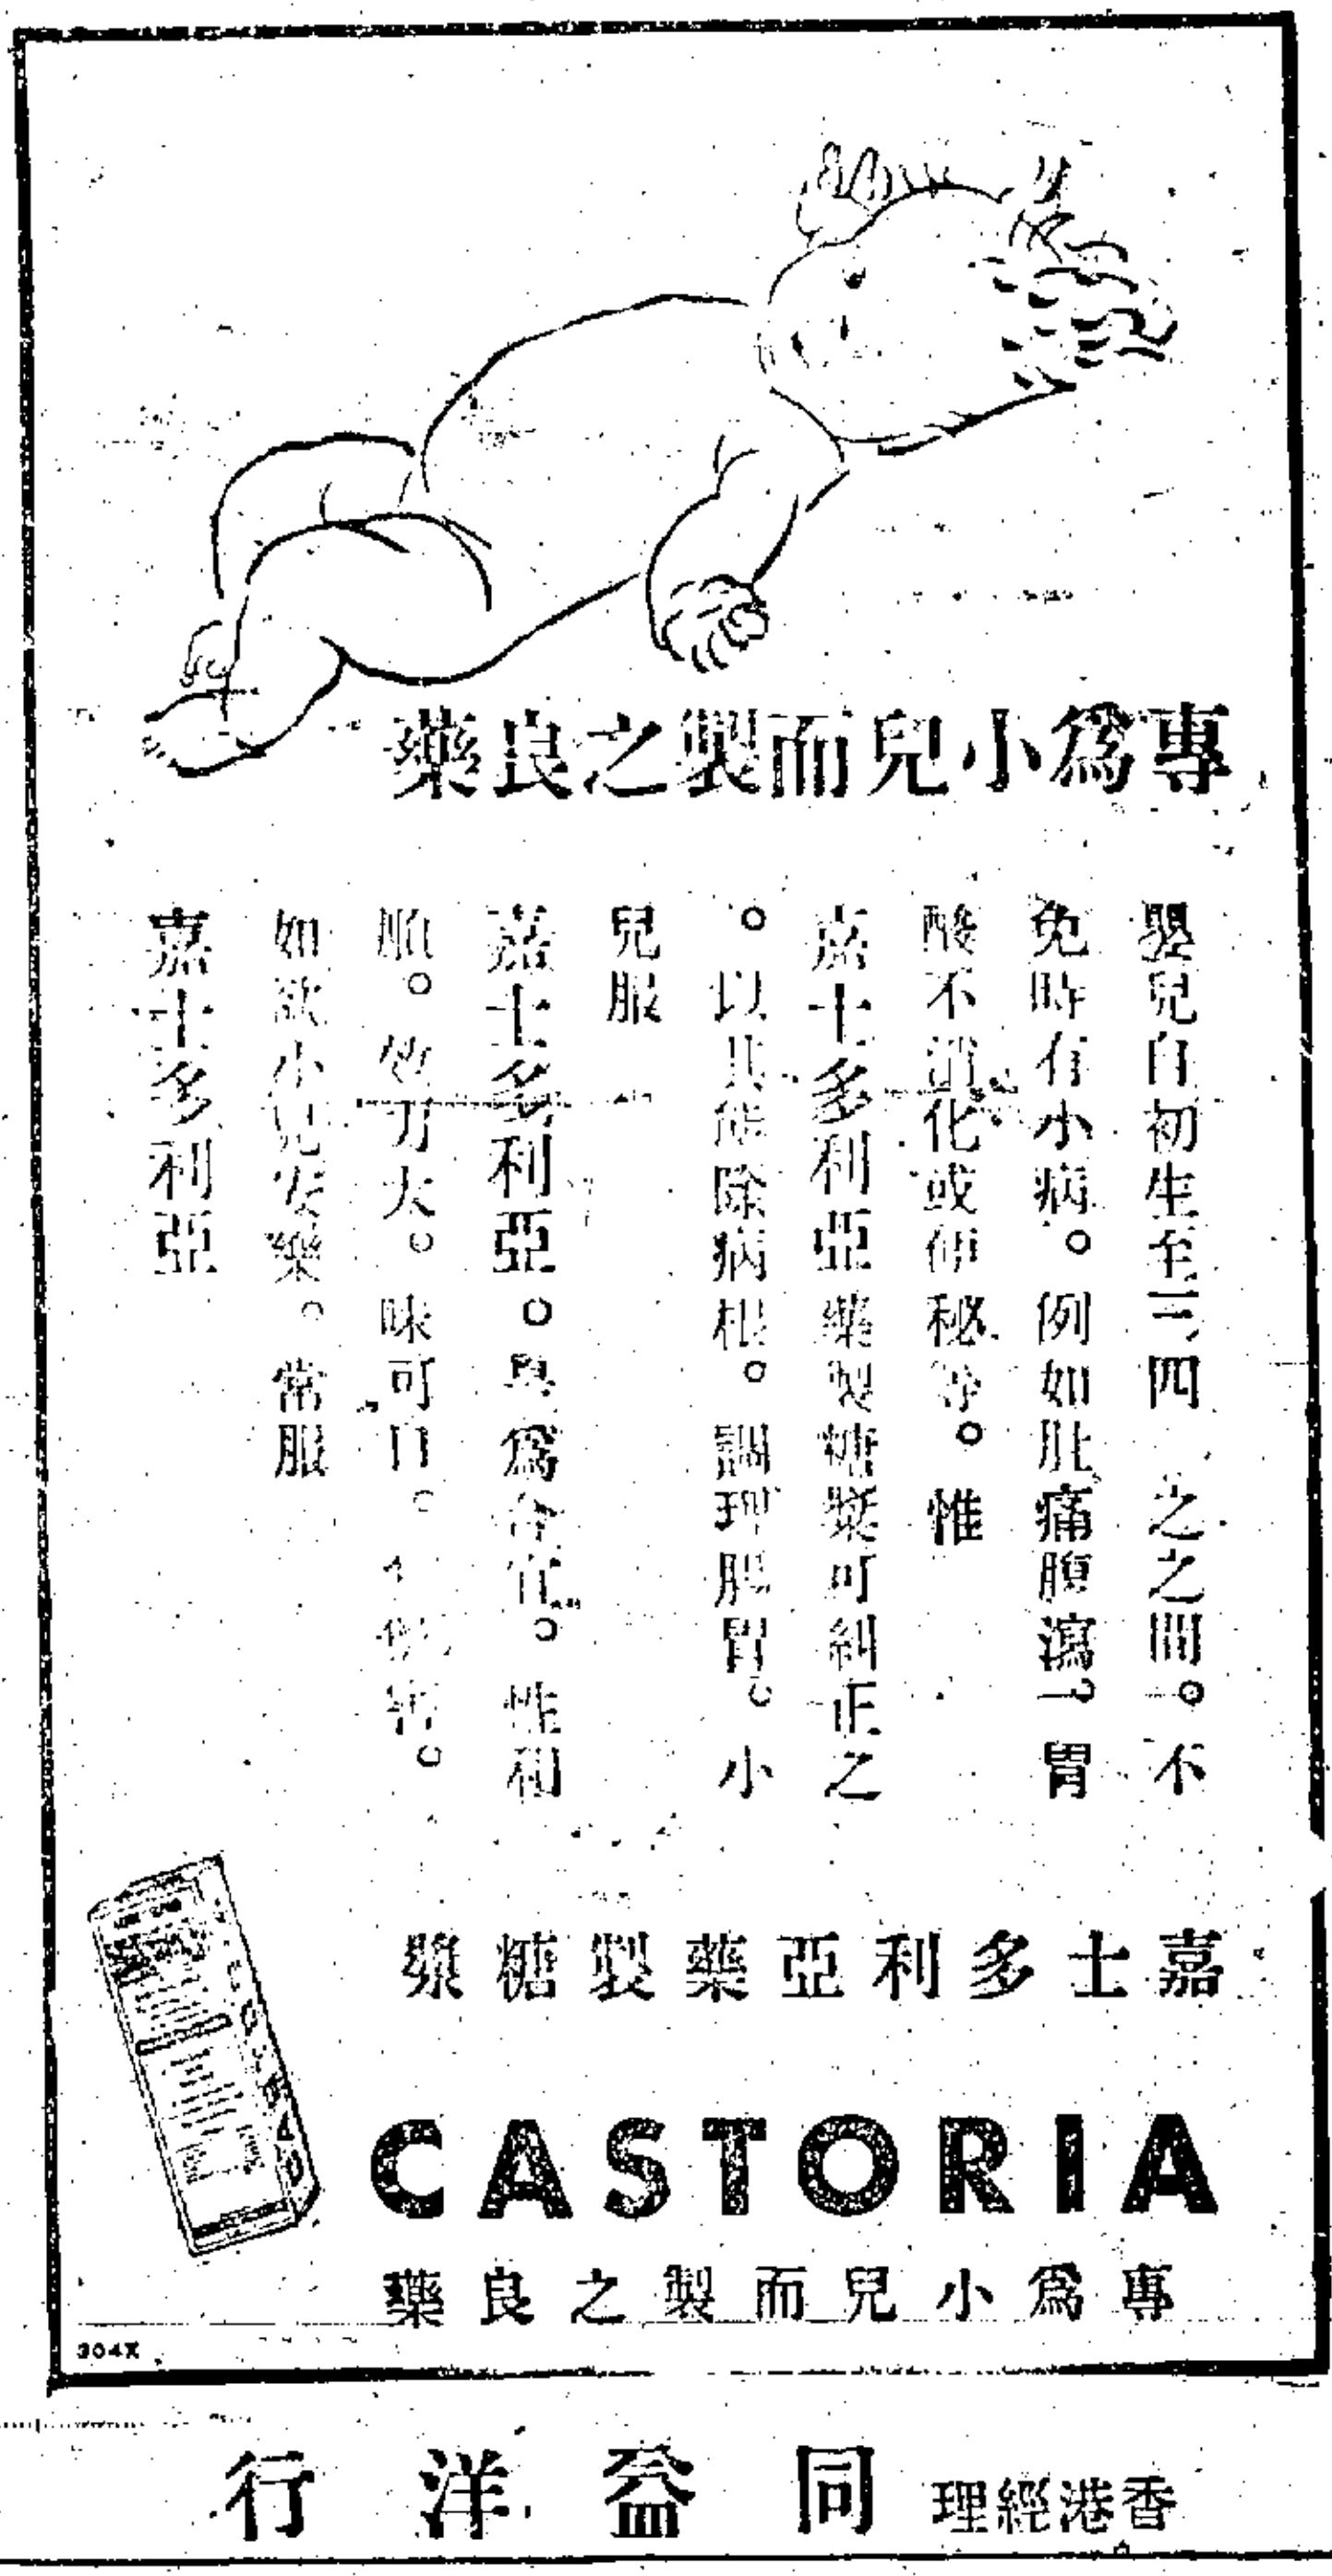 專爲小兒而製之良藥
嬰兒自初生至三四之間。不
免時有小病。例如肚痛腹瀉。胃
酸不消化或便秘等。惟
嘉士多利亞藥製糖漿可糾正之
。以其能除病根。調理腸胃。小
兒服
嘉士多利亞。最爲合宜。性和
順。効力大。味可口。
如欲小兒安樂。常服
嘉士多利亞
嘉士多利亞藥製糖漿
CASTORIA
專爲小兒而製之良藥
304X
香港經理 同益洋行